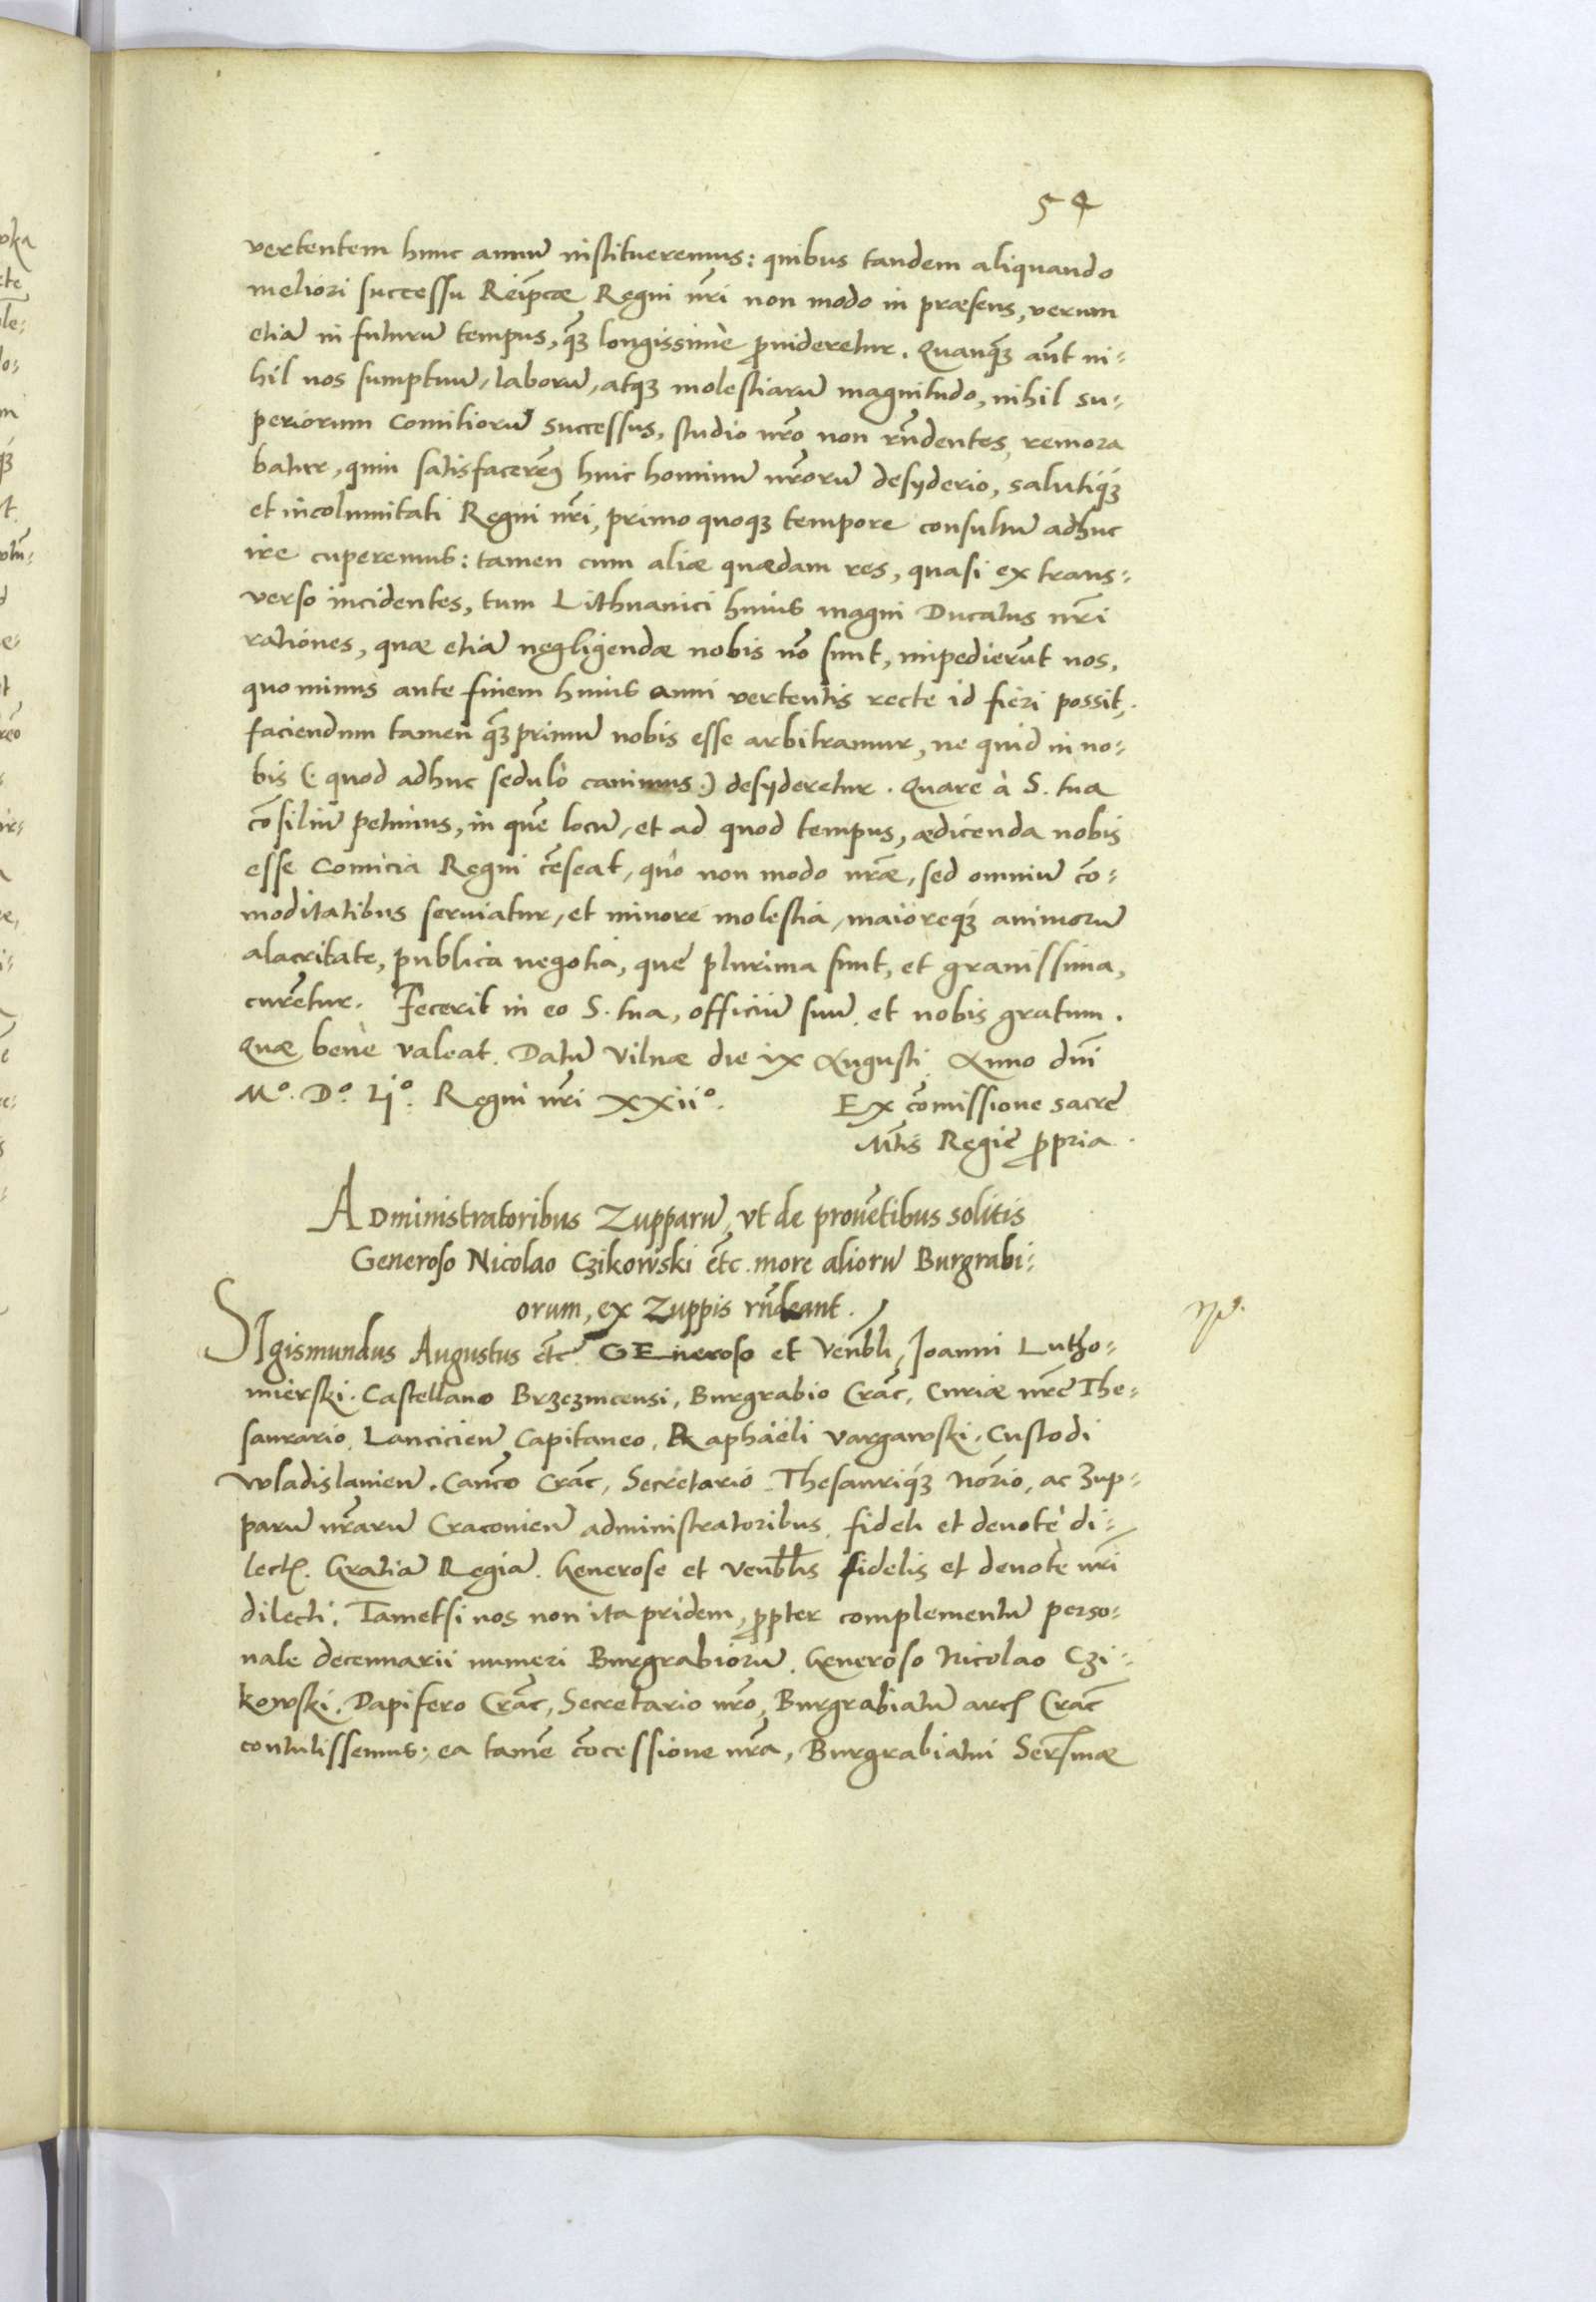 54
vertentem hunc annũ institueremus: quibus tandem aliquando
meliori successu Reipcæ Regni nr̃i non modo in præsens, verum
etiã in futurũ tempus, q̃ȝ longissime ꝓuideretur. Quanq̃ȝ aũt ni-
hil nos sumptuũ, laborũ, atqȝ molestiarũ magnitudo, nihil su-
periorum Comitiorũ successus, studio nr̃o non rñdentes, remora
batur, quin satisfacerem9 huic hominũ nr̃orũ desyderio, salutiqȝ
et incolumitati Regni nr̃i, primo quoqȝ tempore consultũ adhuc
ire cuperemus: tamen cum aliæ quædam res, quasi ex trans-
verso incidentes, tum Lithuanici huius magni Ducatus nr̃i
rationes, quæ etiã negligendæ nobis nõ sunt, impedierũt nos,
quo minus ante finem huius anni vertentis recte id fieri possit,
faciendum tamen q̃ȝ primũ nobis esse arbitramur, ne quid in no-
bis (: quod adhuc sedulò cauimus :) desyderetur. Quare à S. tua
cõsiliũ petimus, in quẽ locũ, et ad quod tempus, ædicenda nobis
esse Comicia Regni cẽseat, quo non modo nr̃æ, sed omniũ cõ-
moditatibus seruiatur, et minore molestia, maioreqȝ animorũ
alacritate, publica negotia, quę plurima sunt, et grauissima,
curẽtur. Fecerit in eo S. tua, officiũ suũ et nobis gratum.
Quæ bene valeat. Datũ Vilnæ die ix Augusti Anno dñi
Mº. Dº. Ljº. Regni nr̃i XXiiº. Ex cõmissione sacrę
Mt̃is Regię ꝓpria.
ADministratoribus Zupparũ, vt de prouẽtibus solitis
Generoso Nicolao Czikowski etc̃. more aliorũ Burgrabi-
orum, ex Zuppis rñdeant.
SIgismundus Augustus etc̃ GEneroso et Venbli, Joanni Lutho-
mierski. Castellano Brzezincensi, Burgrabio Crac̃, Curiæ nr̃ę The-
saurario, Lancicien̄ Capitaneo, Raphaëli Vargawski, Custodi
Wladislauien̄. Can̄co Crac̃, Secretario Thesauriqȝ Nor̃io, ac Zup-
parũ nr̃arũ Cracouien̄ administratoribus, fideli et deuotè di-
lect. Gratiã Regiã. Generose et Venblis fidelis et deuotè nr̃i
dilecti. Tametsi nos non ita pridem, ꝓpter complementũ perso-
nale decennarii numeri Burgrabiorũ, Generoso Nicolao Czi-
kowski, Dapifero Crac̃, Secretario nr̃o, Burgrabiatũ arc Crac̃
contulissemus, ea tamẽ cõcessione nr̃a, Burgrabiatui Ser̃mæ